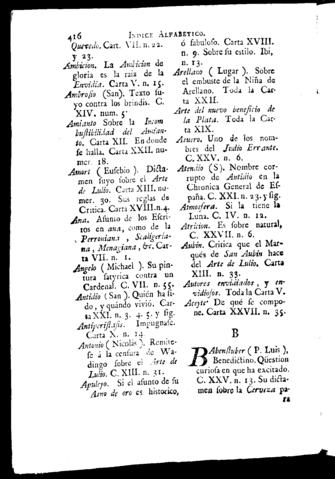 416 INDICE ALFABETICO.
Quevedo. Cart. VII. n. 22.
y 23.
Ambicion. La Ambicion de
gloria es la raiz de la
Envidia. Carta V. n. 15.
Ambrosio (San). Texto su-
yo contra los brindis. C.
XIV. num. 5.
Amianto Sobre la Incom
bustibilidad del Amian-
to. Carta XII. En donde
se halla. Carta XXII. nu-
mer. 18.
Amort ( Eusebio ). Dictá-
men suyo sobre el Arte
de Lulio. Carta XIII. nu-
mer. 30. Sus reglas de
Critica. Carta XVIII. n. 4.
Ana. Asunto de los Escri-
tos en ana, como de la
Perroniana, Scaligeria-
na, Menagiana, &c. Car-
ta VII. n. 1.
Angelo ( Michael ). Su pin-
tura satyrica contra un
Cardenal. C. VII. n. 55.
Antidio (San). Quién ha si-
do, y quándo vivió. Car-
ta XXI. n. 3. 4. 5. y sig.
Antiperistasis. Impugnase.
Carta X. n. 12
Antonio ( Nicolás ). Remite-
se á la censura de Wa-
dingo sobre el Arte de
Lulio. C. XIII. n. 31.
Apuleyo. Si el asunto de su
Asno de oro es historico,
ó fabuloso. Carta XVIII.
n. 9. Sobre su estilo. Ibi,
n. 13.
Arellano ( Lugar ). Sobre
el embuste de la Niña de
Arellano. Toda la Car-
ta XXII.
Arte del nuevo beneficio de
la Plata. Toda la Car-
ta XIX.
Asuero. Uno de los nom-
bres del Judio Errante.
C. XXV. n. 6.
Atencio (S). Nombre cor-
rupto de Antidio en la
Chronica General de Es-
paña. C. XXI. n. 23. y sig.
Atmosfera. Si la tiene la
Luna. C. IV. n. 12.
Atricion. Es sobre natural,
C. XXVII. n. 6.
Aubin. Critica que el Mar-
qués de San Aubin hace
del Arte de Lulio. Carta
XIII. n. 33.
Autores envidiados, y en-
vidiosos. Toda la Carta V.
Aceyte De qué se compo-
ne. Carta XXVII. n. 35.
B
Babenstuber ( P. Luis ),
Benedictino. Qüestion
curiosa en que ha excitado.
C. XXV. n. 13. Su dicta-
men sobre la Cerveza pa-
ra